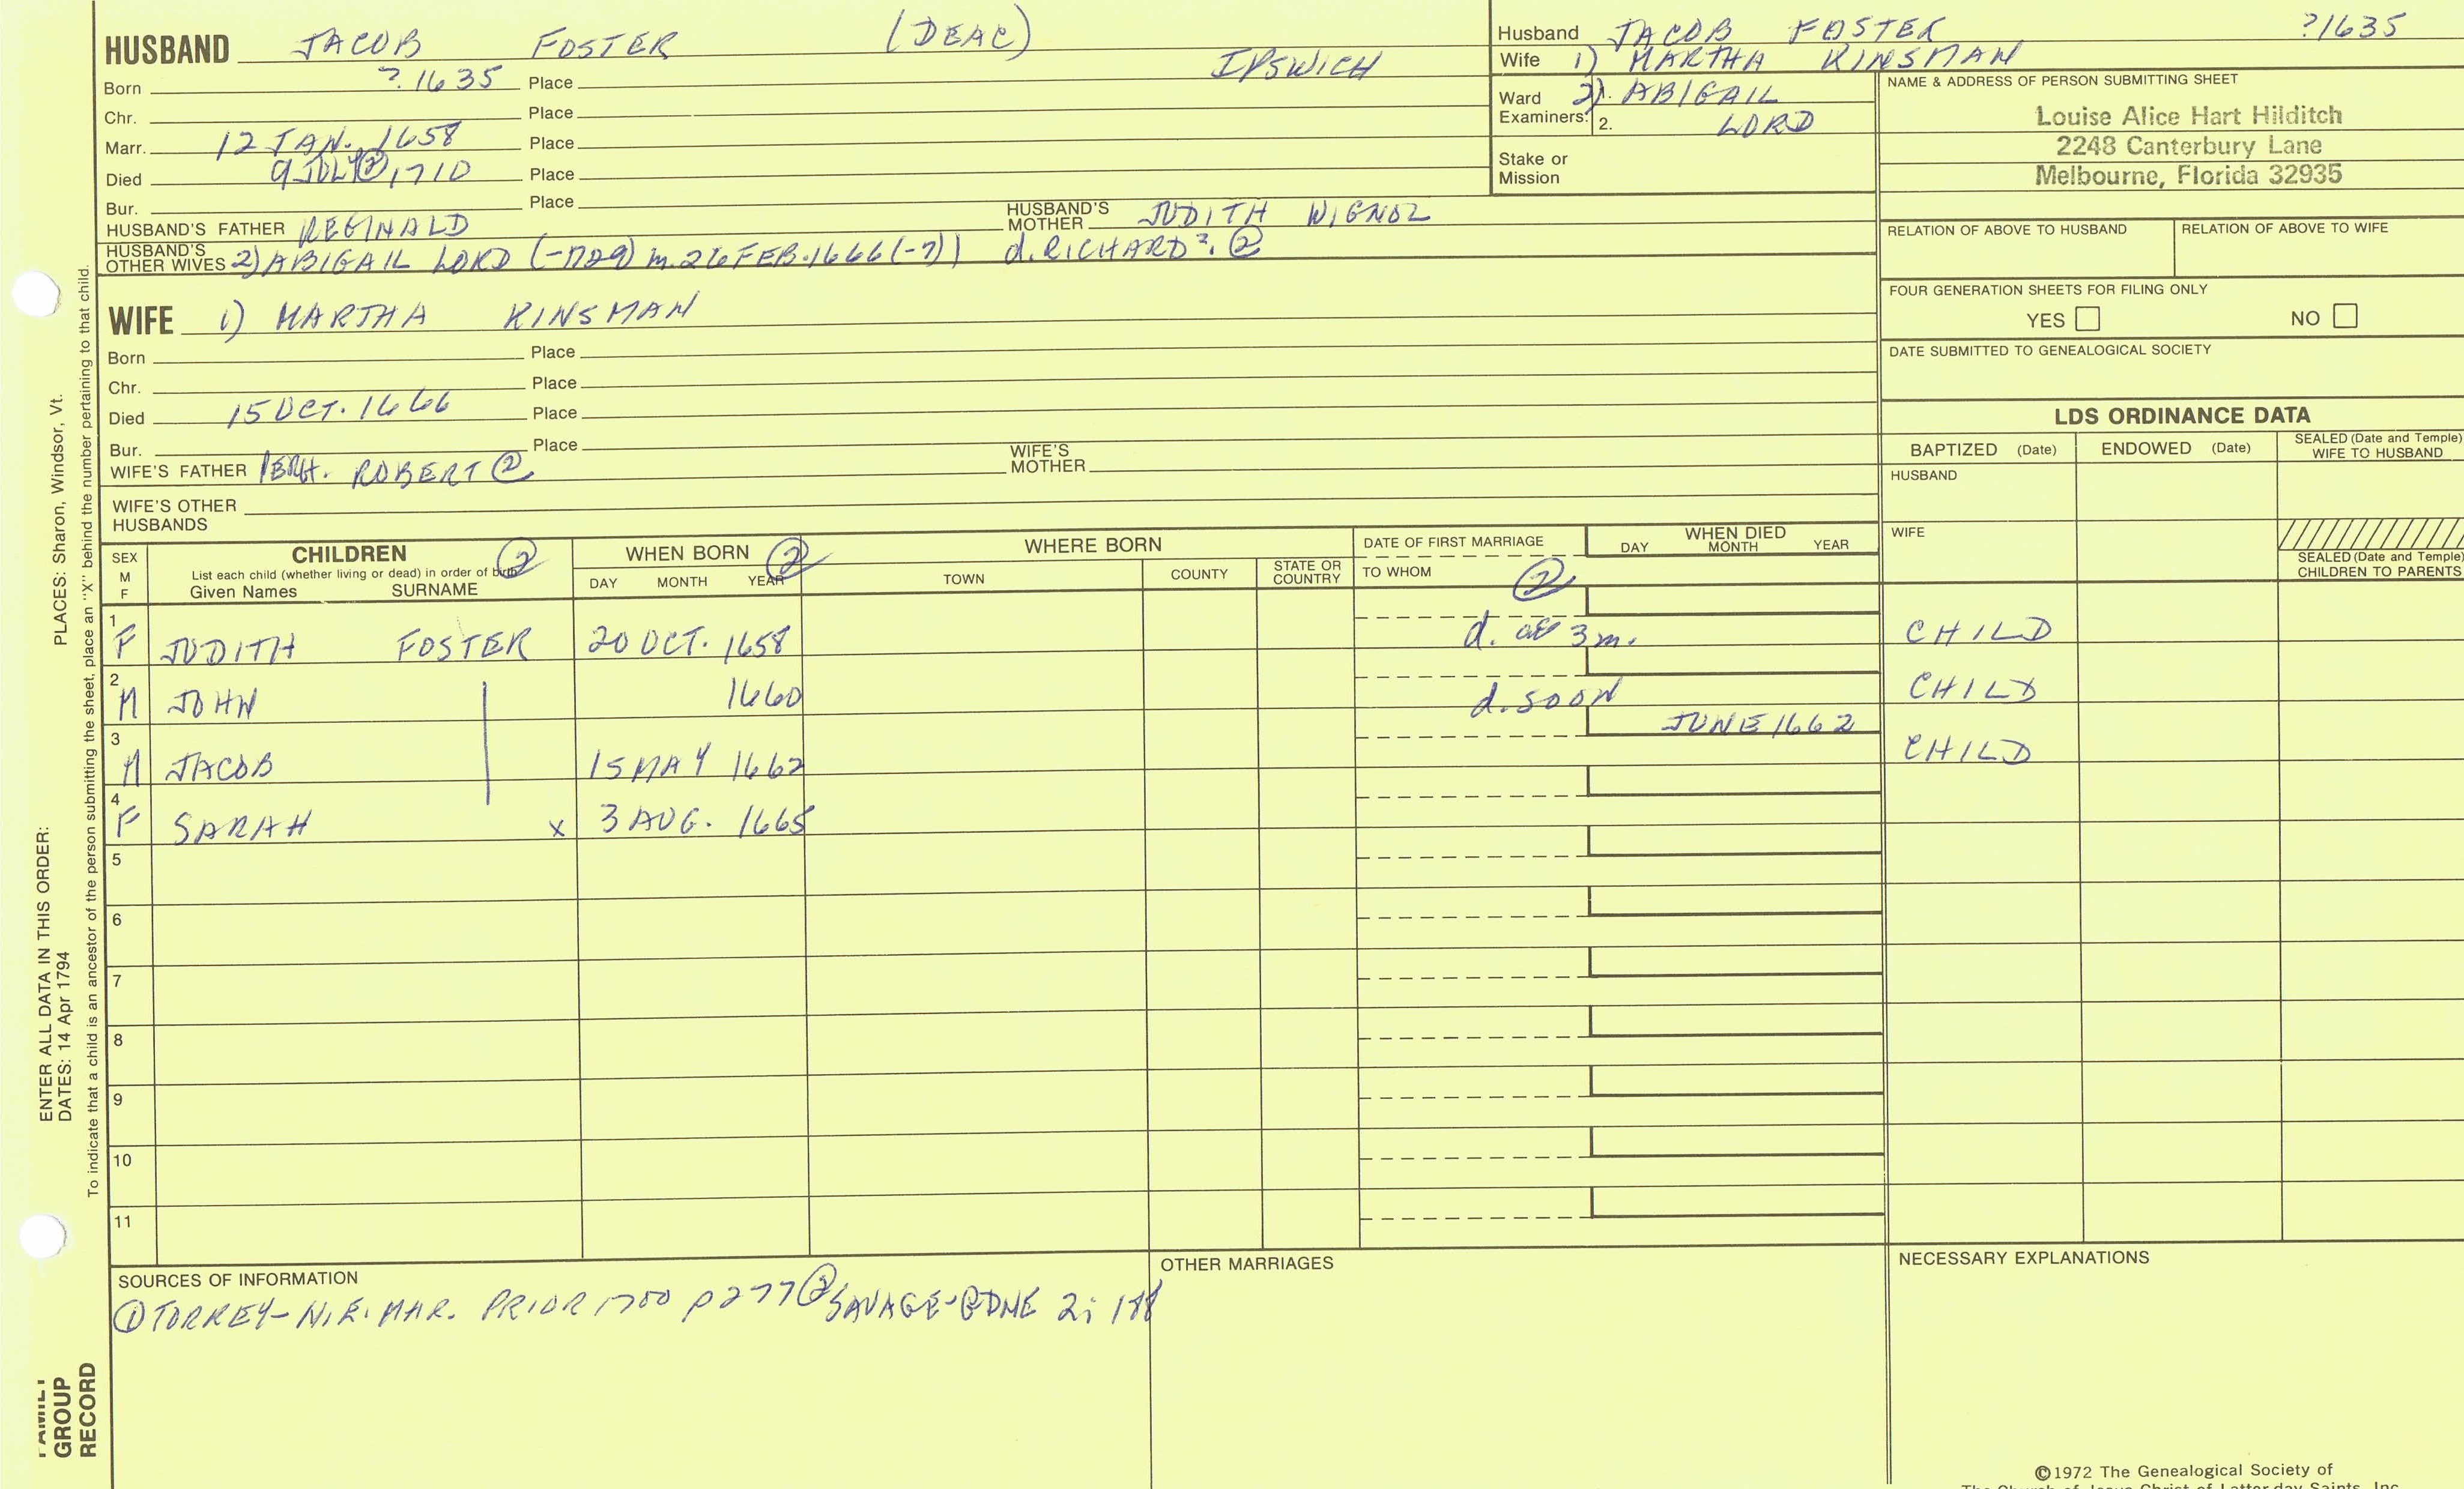 HUSBAND JACOB FOSTER (DEAC)
IPSWICH
Born ? 1635 Place
Chr. Place
Marr. 12 JAN. 1658 Place
Died 9 JULY ② 1710 Place
Bur. Place
HUSBAND'S FATHER REGINALD HUSBAND'S MOTHER JUDITH WIGNOL
HUSBAND'S OTHER WIVES 2) ABIGAIL LORD (-1729) m. 26 FEB. 1666 (-7)) d. RICHARD ?. ②
WIFE 1) MARTHA KINSMAN
Born Place
Chr. Place
Died 15 OCT. 1666 Place
Bur. Place
WIFE'S FATHER ROBERT ② WIFE'S MOTHER
WIFE'S OTHER HUSBANDS
Husband JACOB FOSTER ?1635
Wife 1) MARTHA KINSMAN
Ward 2) ABIGAIL
Examiners: 1.
2. LORD
Stake or Mission
NAME & ADDRESS OF PERSON SUBMITTING SHEET
Louise Alice Hart Hilditch
2248 Canterbury Lane
Melbourne, Florida 32935
RELATION OF ABOVE TO HUSBAND RELATION OF ABOVE TO WIFE
FOUR GENERATION SHEETS FOR FILING ONLY
YES NO
DATE SUBMITTED TO GENEALOGICAL SOCIETY
LDS ORDINANCE DATA
BAPTIZED (Date) ENDOWED (Date) SEALED (Date and Temple) WIFE TO HUSBAND
HUSBAND
WIFE
SEALED (Date and Temple) CHILDREN TO PARENTS
SEX M F
CHILDREN ②
List each child (whether living or dead) in order of birth
Given Names SURNAME
WHEN BORN ②
DAY MONTH YEAR
WHERE BORN
TOWN COUNTY STATE OR COUNTRY
DATE OF FIRST MARRIAGE
TO WHOM ②
WHEN DIED
DAY MONTH YEAR
1 F JUDITH FOSTER 20 OCT. 1658 d. ae 3 m. CHILD
2 M JOHN 1660 d. SOON CHILD
3 M JACOB 15 MAY 1662 JUNE 1662 CHILD
4 F SARAH X 3 AUG. 1665
5
6
7
8
9
10
11
SOURCES OF INFORMATION
① TORREY - N.E. MAR. PRIOR 1700 p 277 ② SAVAGE - GDNE 2; 188
OTHER MARRIAGES
NECESSARY EXPLANATIONS
©1972 The Genealogical Society of
The Church of Jesus Christ of Latter-day Saints, Inc.
PLACES: Sharon, Windsor, Vt.
ENTER ALL DATA IN THIS ORDER:
DATES: 14 Apr 1794
To indicate that a child is an ancestor of the person submitting the sheet, place an "X" behind the number pertaining to that child.
FAMILY
GROUP
RECORD